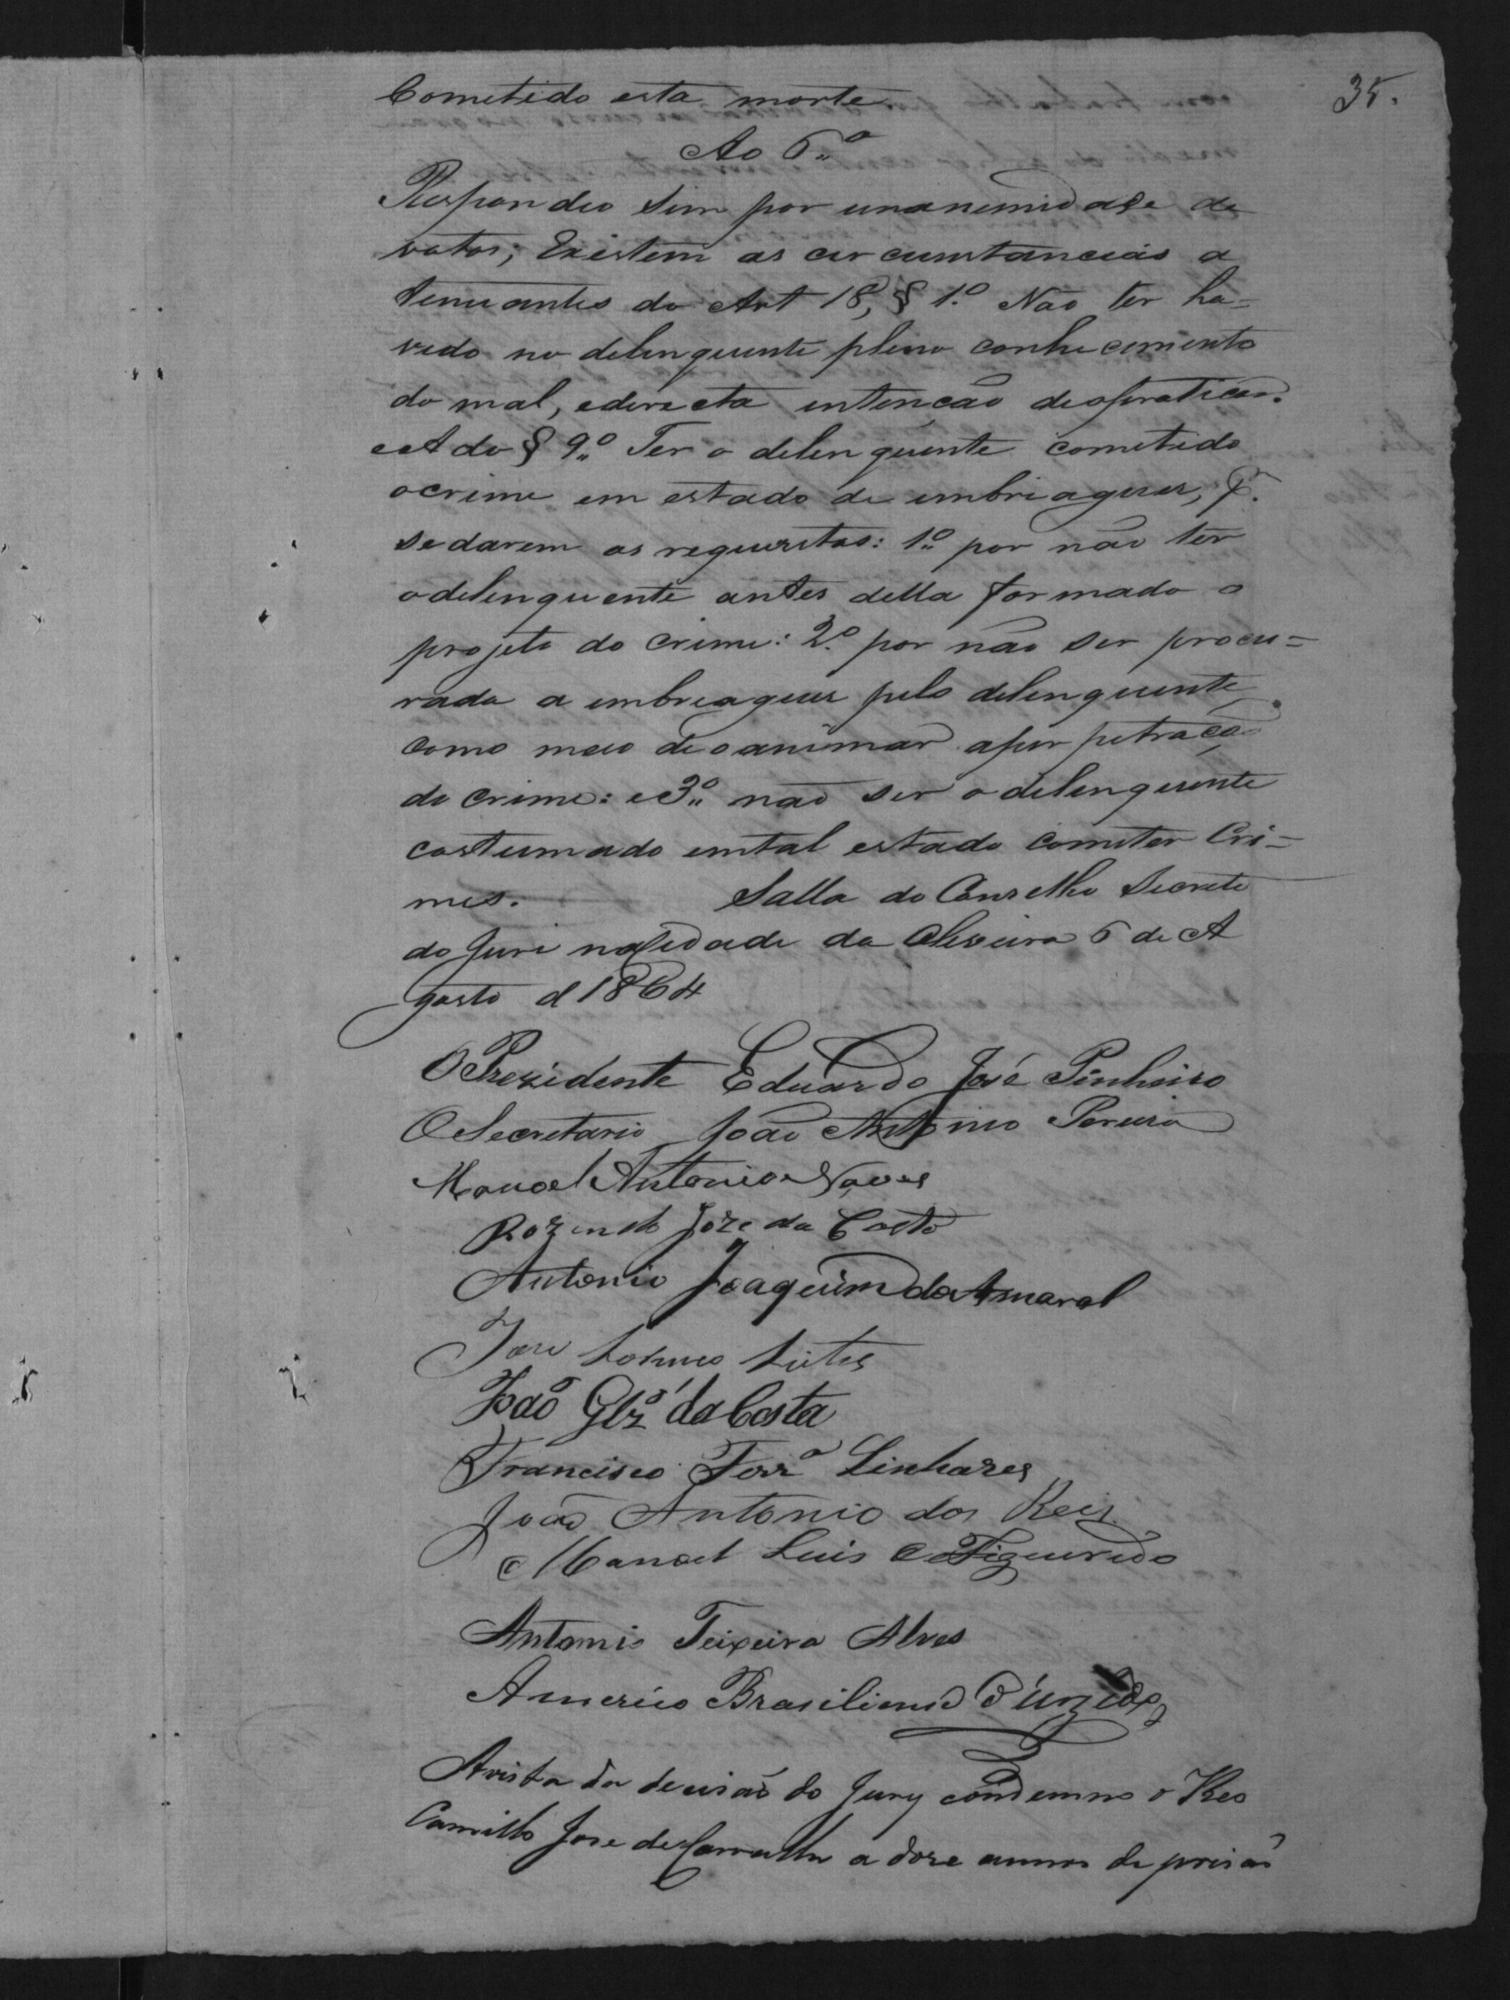 35.
Cometido esta morte
Ao 6.º
Respondeo sim por unanimidade de
votos; Existem as circumstancias a
tenuantes do Art 18, § 1.º Não ter ha=
vido no delenquente pleno conhecimento
do mal, edirecta intenção deopraticar.
eAdo § 9.º Ter o delenquente cometido
ocrime em estado de embriaguez, p.
sedarem os requezitos: 1.º por não ter
odelenquente antes della formado o
projeto do crime: 2.º por não ser procu=
rada a embreaguez pelo delenquente
como meio deoanimar aperpetração
do crime: e3.º não ser o delenquente
costumado emtal estado cometer Cri=
mes. Salla do Conselho Secreto
do Juri naCidade da Oliveira 6 de A
gosto d 1864
O Prezidente Eduardo José Pinheiro
O Secretario João Antonio Pereira
Manoel Antonio Naves
Rozendo Joze da Costa
Antonio Joaquim do Amaral
Jose Leite
João Glz' da Costa
Francisco Ferr.ª Linhares
João Antonio dos Reis
Manoel Luis Figueredo
Antonio Teixeira Alves
Americo Brasiliense
Avista da decisão do Jury condemno o Reo
Camillo Jose de Carvalho a doze annos de prisão